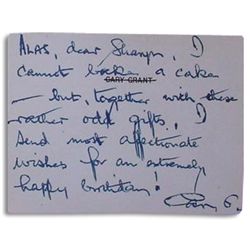 Alas, dear Sharyn, I
cannot bake a cake
CARY GRANT
— but, together with these
rather odd gifts, I
send most affectionate
wishes for an extremely
happy birthday!
Cary G.